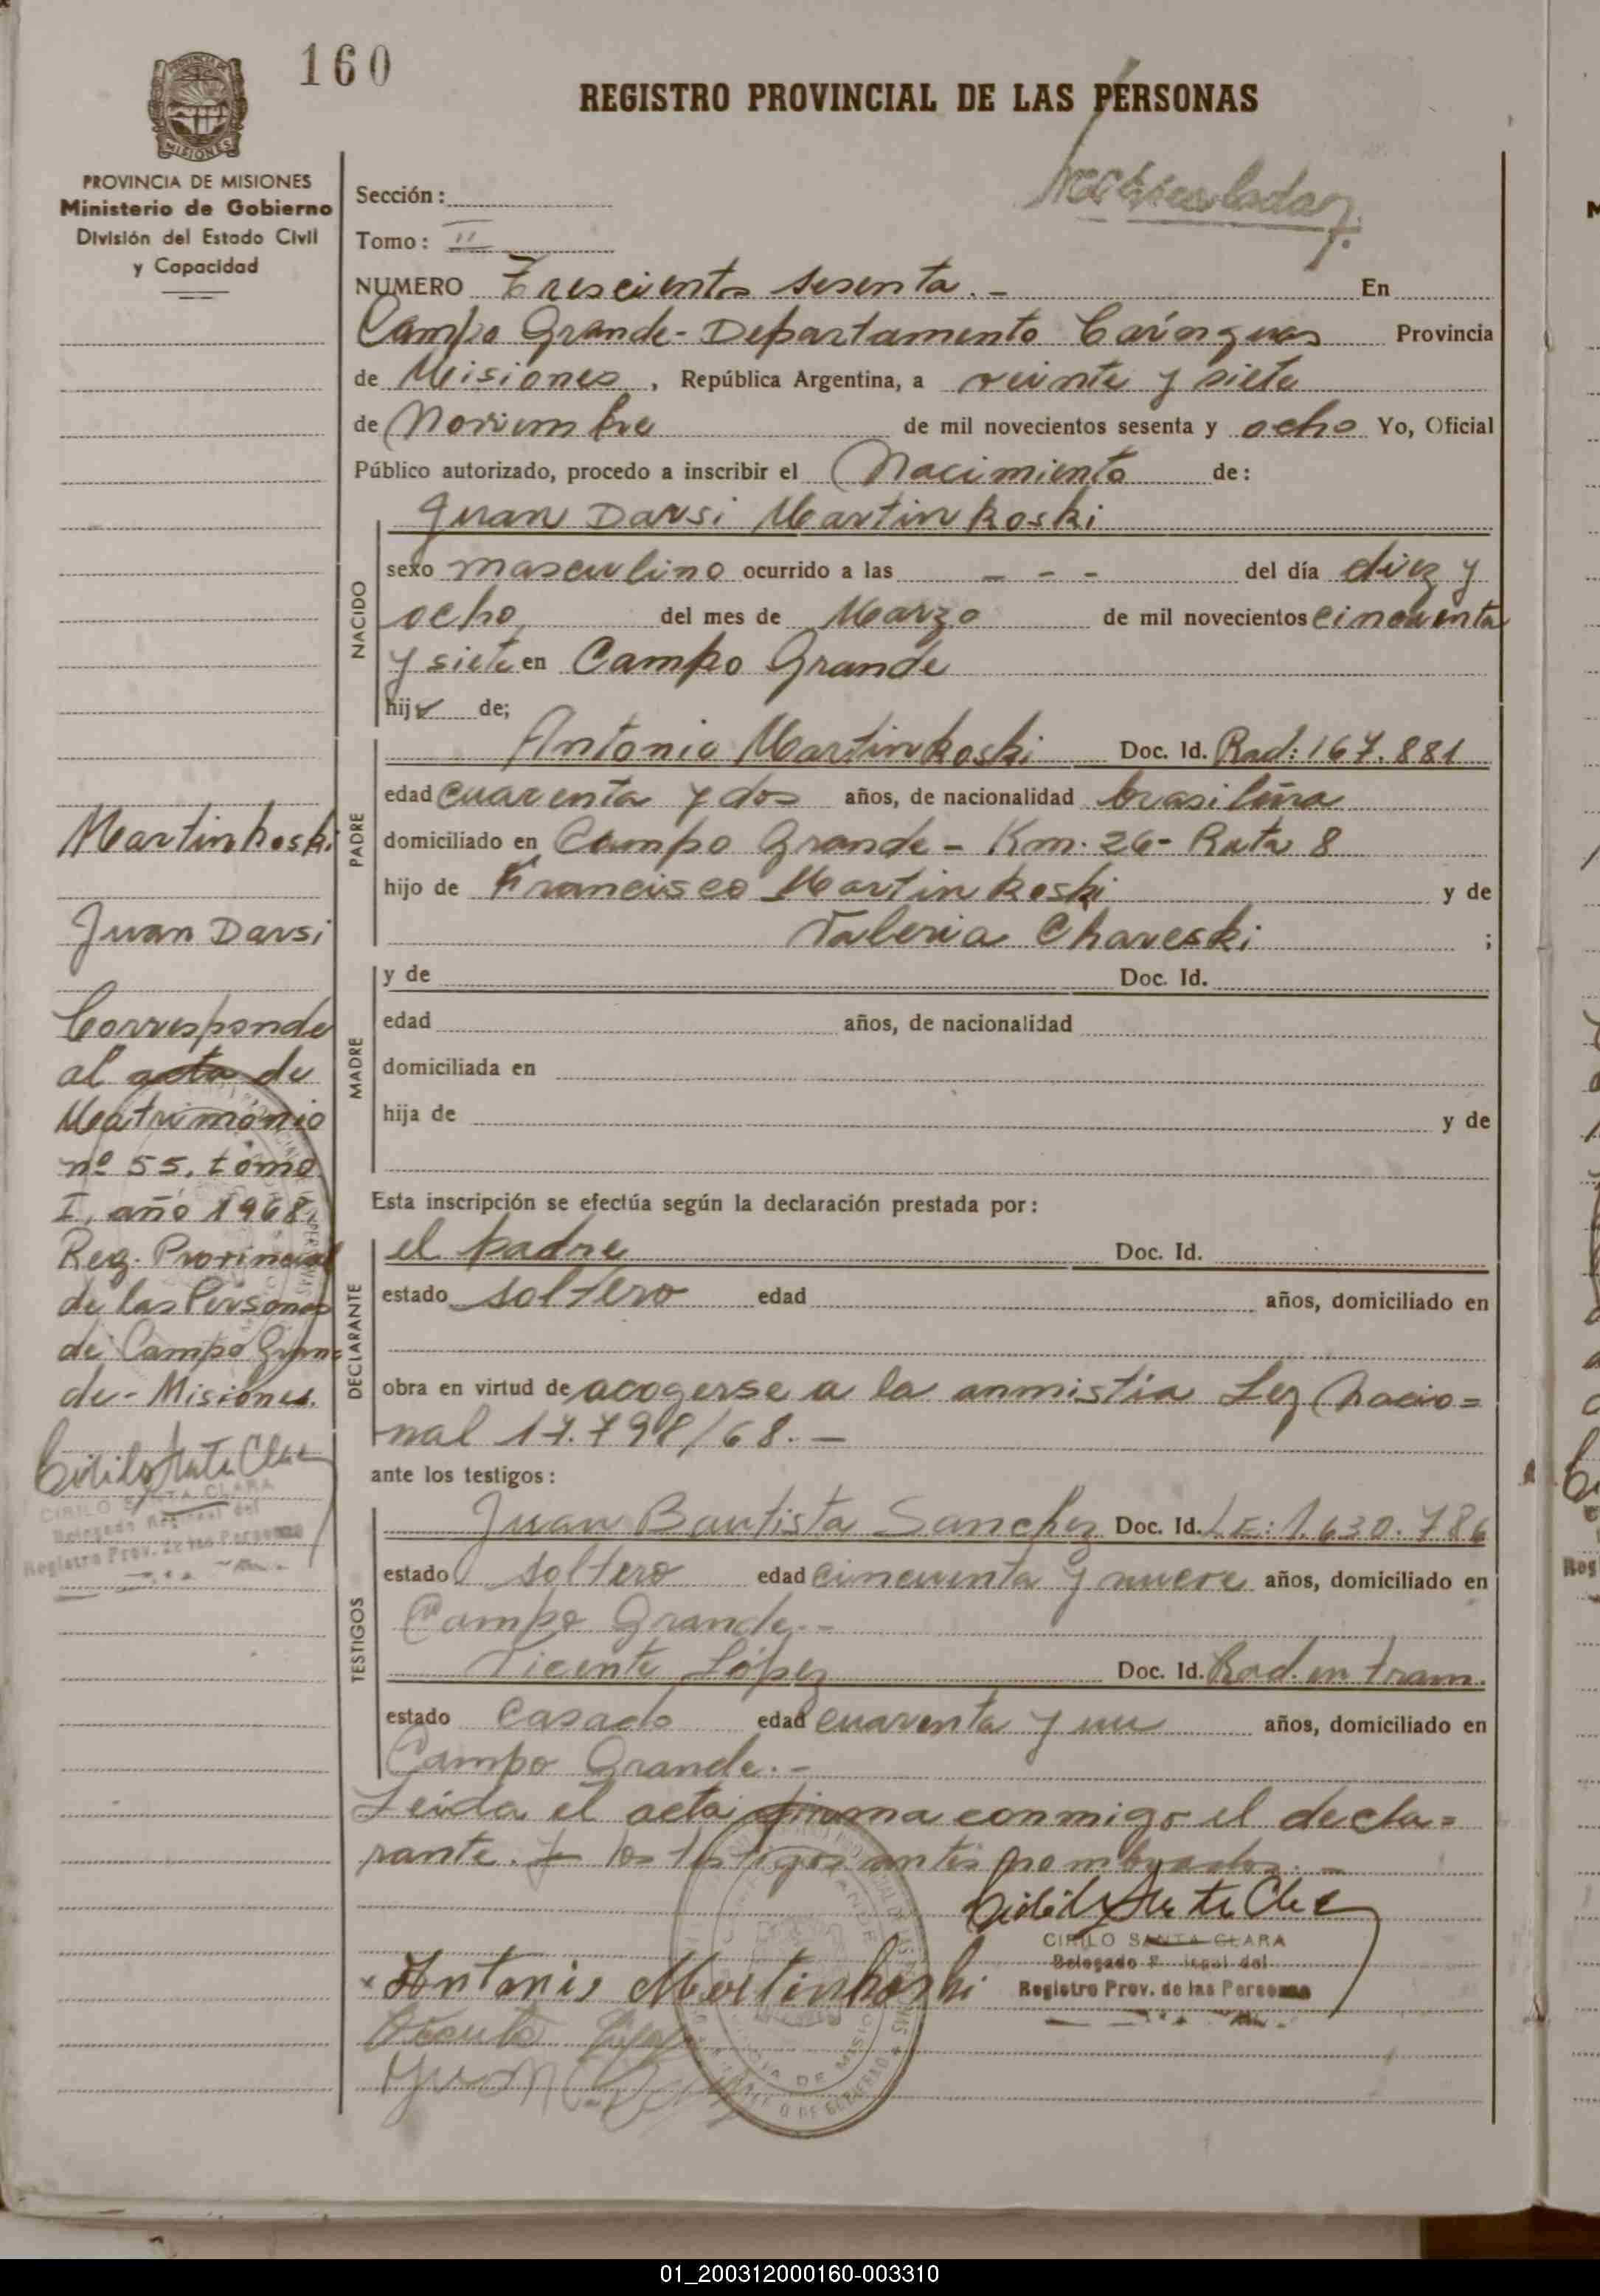 160
REGISTRO PROVINCIAL DE LAS PERSONAS
MISIONES
PROVINCIA DE MISIONES
Ministerio de Gobierno
División del Estado Civil
y Capacidad
Sección:
Tomo: II
NUMERO Trescientos sesenta.- En
Campo Grande - Departamento Cainguas Provincia
de Misiones, República Argentina, a veinte y siete
de Noviembre de mil novecientos sesenta y ocho Yo, Oficial
Público autorizado, procedo a inscribir el Nacimiento de:
Juan Darsi Martinkoski
NACIDO
sexo masculino ocurrido a las - - - del día diez y
ocho, del mes de Marzo de mil novecientos cincuenta
y siete en Campo Grande
hijo de;
PADRE
Antonio Martinkoski Doc. Id. Rad: 167.881
edad cuarenta y dos años, de nacionalidad brasileña
domiciliado en Campo Grande - Km. 26 - Ruta 8
hijo de Francisco Martinkoski y de
Valeria Chareski ;
MADRE
y de Doc. Id.
edad años, de nacionalidad
domiciliada en
hija de y de
Esta inscripción se efectúa según la declaración prestada por:
DECLARANTE
el padre Doc. Id.
estado soltero edad años, domiciliado en
obra en virtud de acogerse a la anmistia Ley Nacio=
nal 17.798/68.-
ante los testigos:
TESTIGOS
Juan Bautista Sanchez Doc. Id. L.E: 1.630.786
estado soltero edad cincuenta y nueve años, domiciliado en
Campo Grande.-
Vicente López Doc. Id. Rad. en tram.
estado casado edad cuarenta y un años, domiciliado en
Campo Grande.-
Leida el acta firma conmigo el decla=
rante. y los testigos antes nombrados.-
CIRILO SANTA CLARA
Delegado Regional del
Registro Prov. de las Personas
x Antonio Martinkoski
Martinkoski
Juan Darsi
Corresponde
al acta de
Matrimonio
nº 55, tomo
I, año 1968.
Reg. Provincial
de las Personas
de Campo Gran=
de - Misiones.
CIRILO SANTA CLARA
Delegado Regional del
Registro Prov. de las Personas
01_200312000160-003310